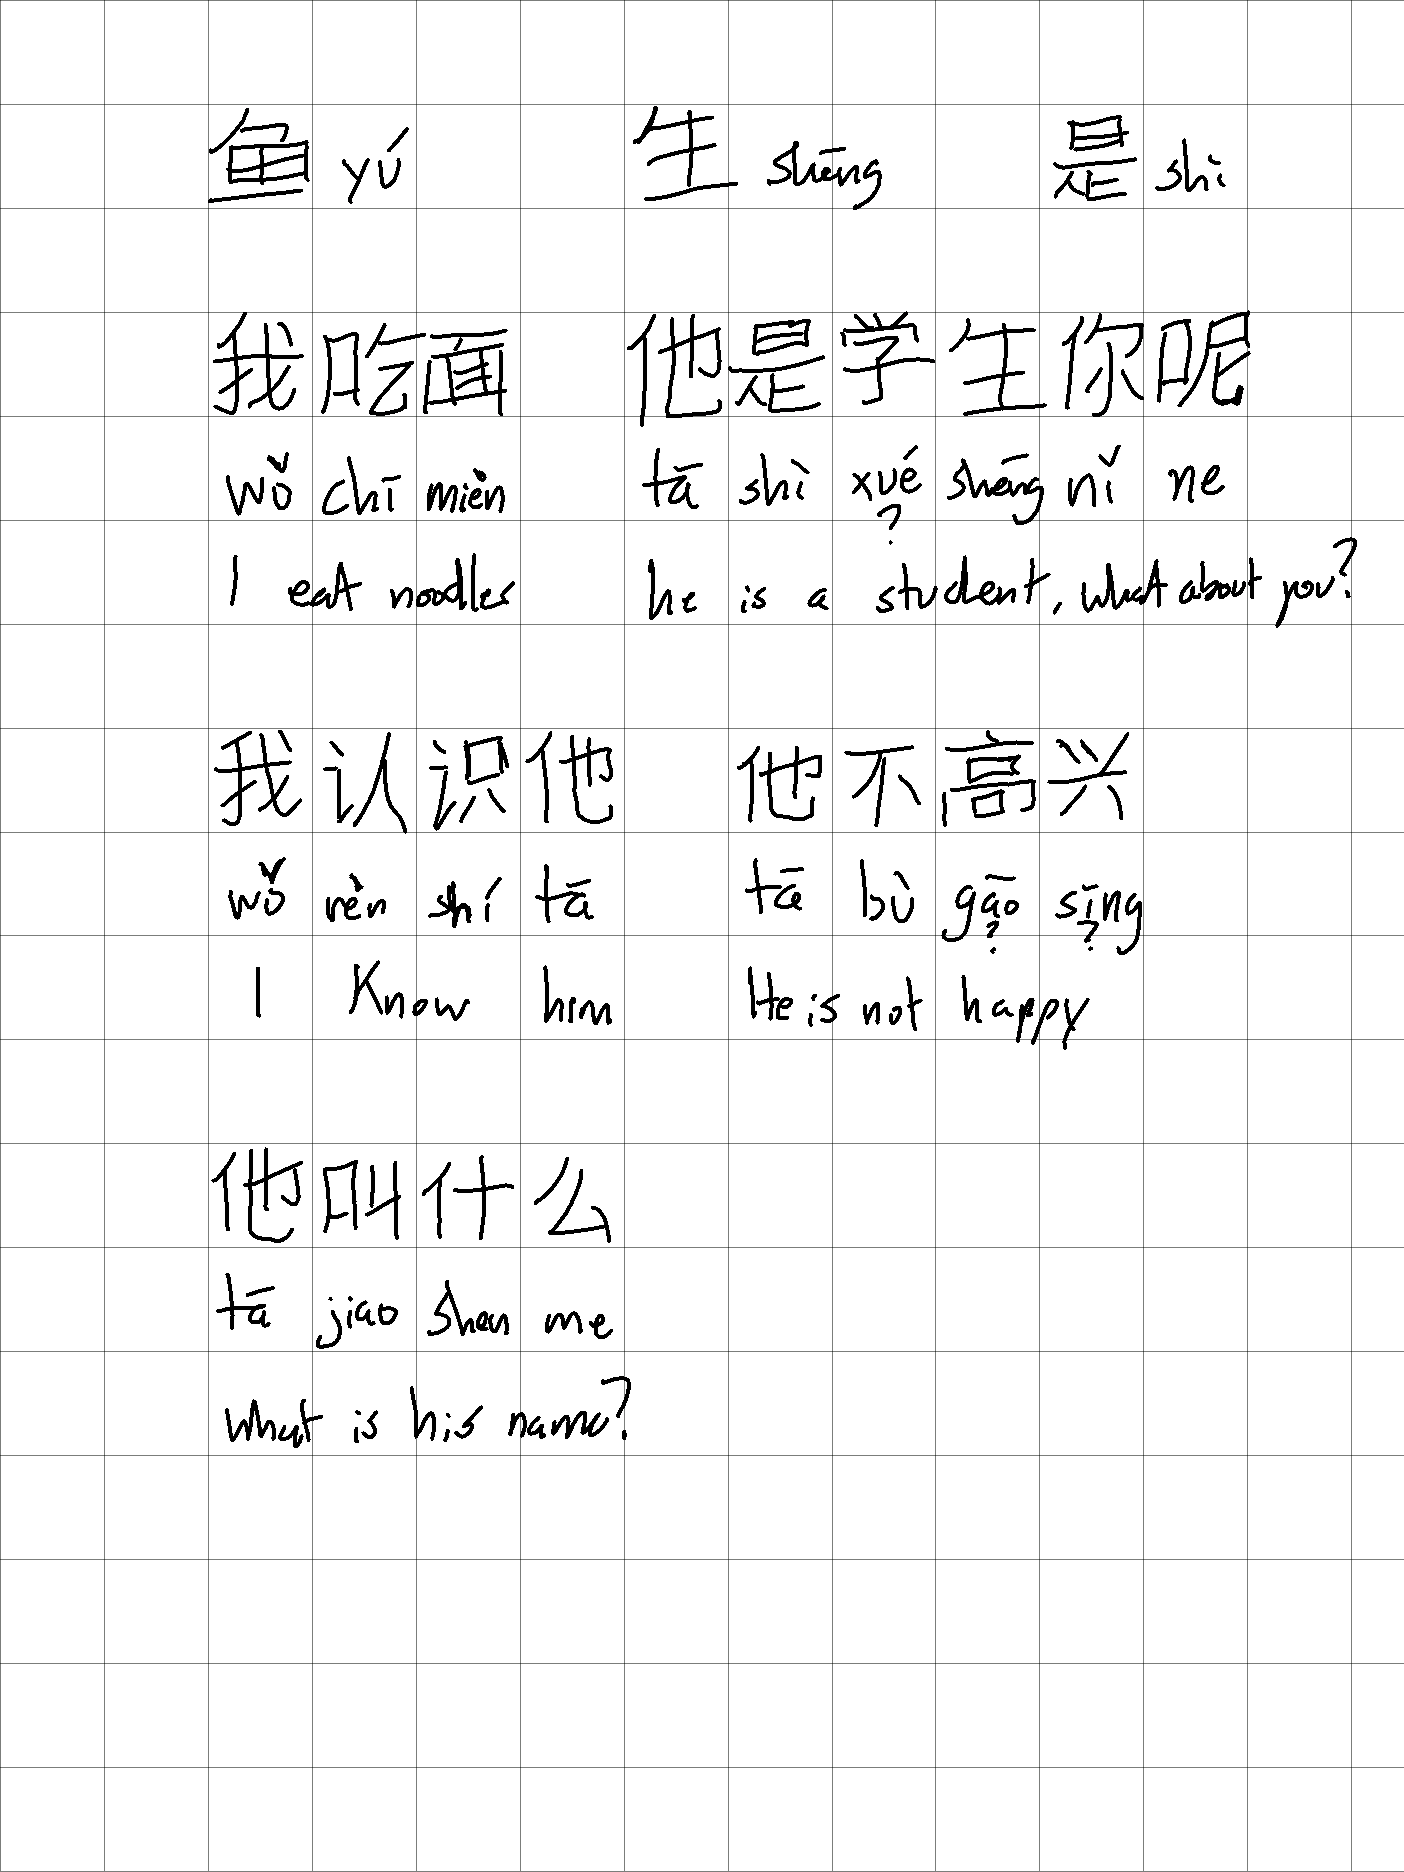 鱼 yú 生 shēng 是 shì
我吃面 他是学生你呢
wǒ chī mièn tā shì xué shēng nǐ ne
?
I eat noodles he is a student, what about you?
我认识他 他不高兴
wǒ rèn shí tā tā bù gāo sīng
? ?
I know him He is not happy
他叫什么
tā jiao shen me
what is his name?